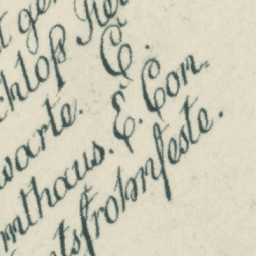 chloß
warte. C.
mthaus. E. Con.
tsfrohnfeste.